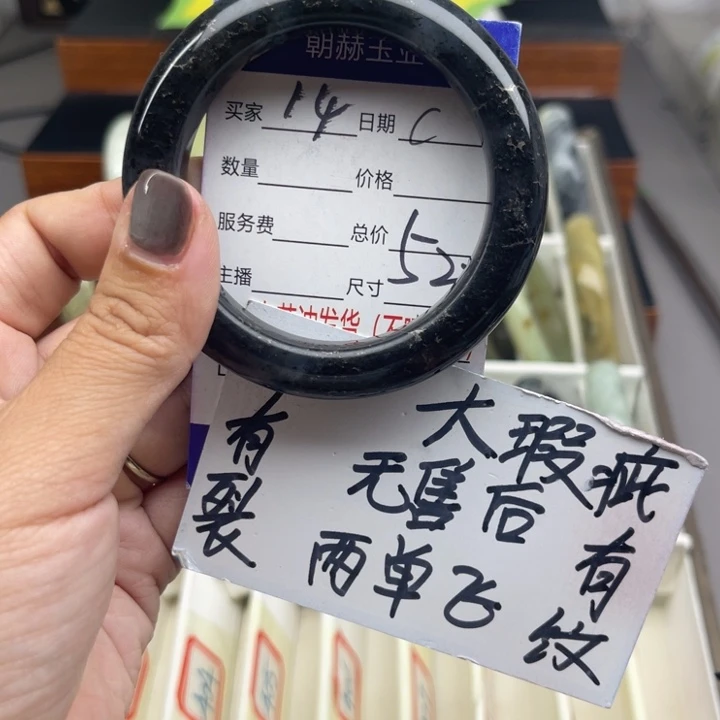 朝赫玉
买家 14 日期
数量 价格
服务费 总价
主播 尺寸 52
发货(不
有裂
大瑕疵
无售后
两单飞
有纹